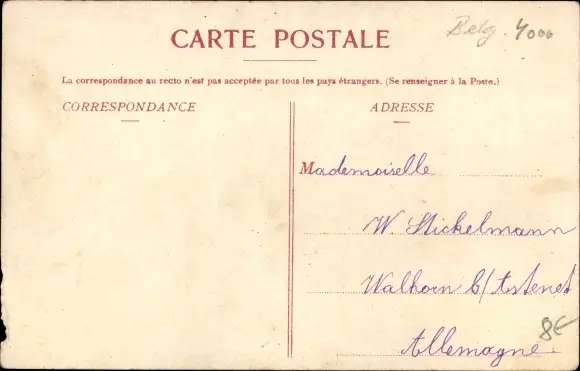 Belg. 4000
CARTE POSTALE
La correspondance au recto n'est pas acceptée par tous les pays étrangers. (Se renseigner à la Poste.)
CORRESPONDANCE
ADRESSE
Mademoiselle
W. Stickelmann
Walhorn b/Astenet
8€
Allemagne.